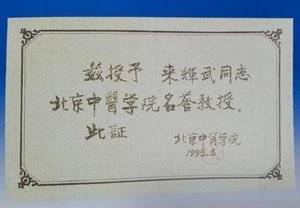 兹授予 来輝武同志
北京中醫学院名誉教授。
此証
北京中醫学院
1993.3